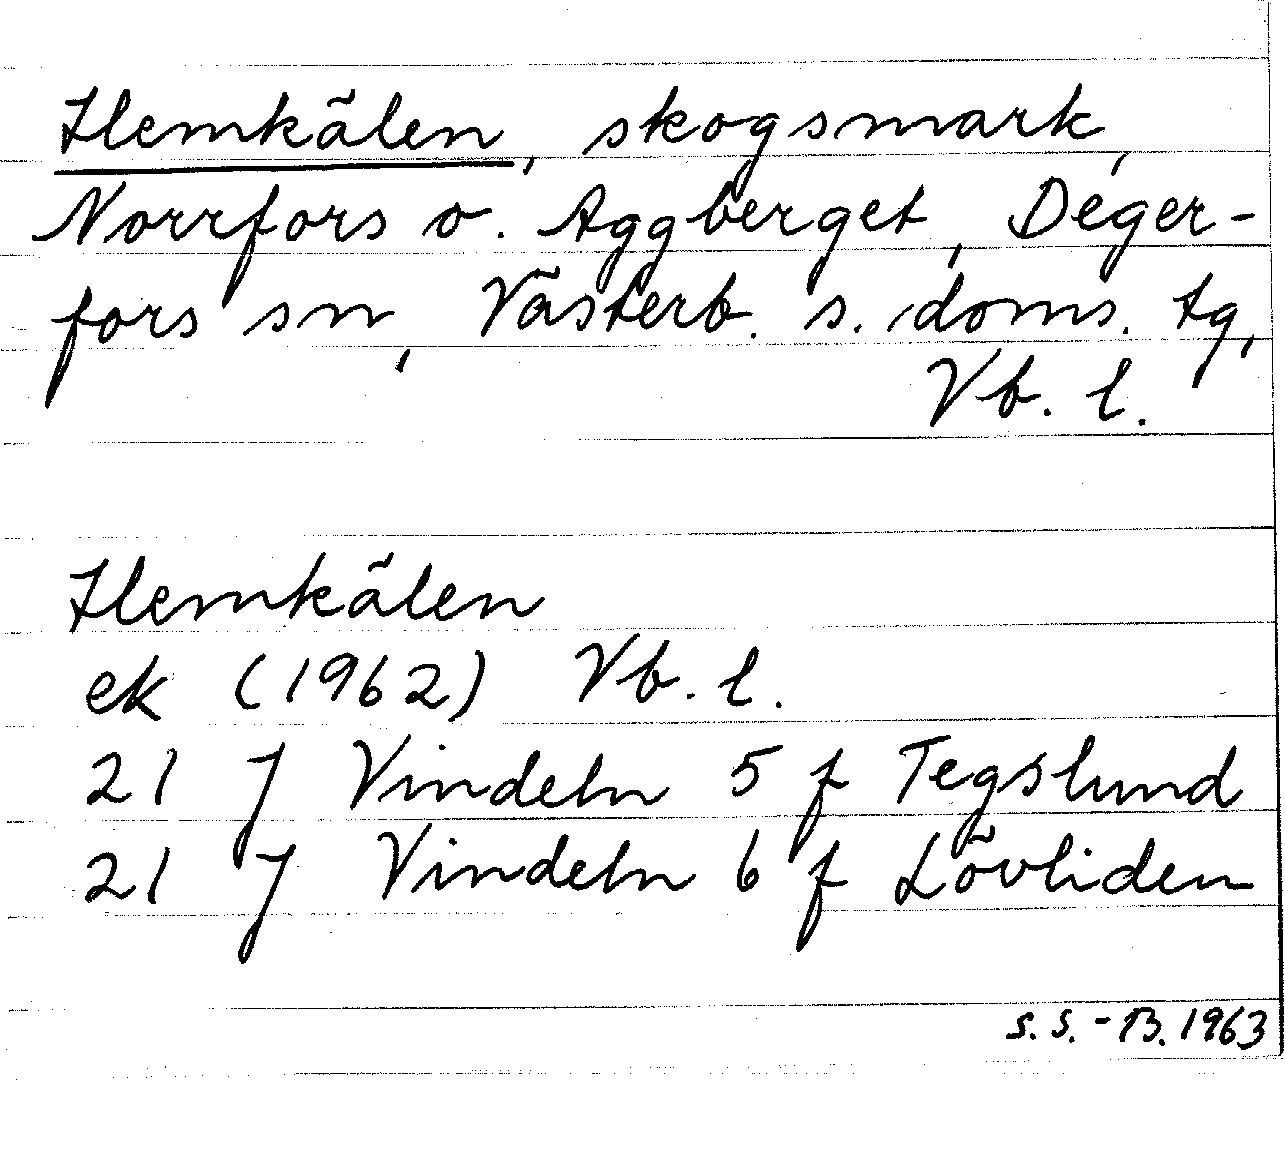 Hemkälen, skogsmark,
Norrfors o. Aggberget, Deger-
fors sn, Västerb. s. doms. tg,
Vb. l.
Hemkälen
ek (1962) Vb. l.
21 J Vindeln 5 f Tegslund
21 J Vindeln 6 f Lövliden
S. S. - B. 1963